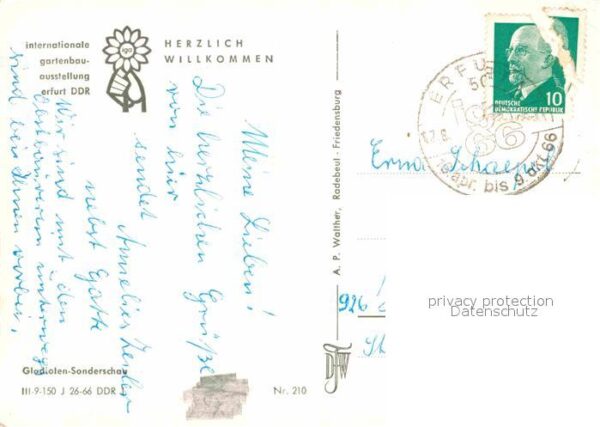 internationale
gartenbau-
ausstellung
erfurt DDR
iga
HERZLICH
WILLKOMMEN
Meine Lieben!
Die herzlichen Grüße
von hier
sendet Annelies
nebst Gatte
Wir sind mit den
unterwegs
sind bei Ihnen vorbei,
Gladiolen-Sonderschau
III-9-150 J 26-66 DDR
Nr. 210
A. P. Walther, Radebeul-Friedensburg
ERFURT
50
66
apr. bis 9. okt. 66
DEUTSCHE
DEMOKRATISCHE REPUBLIK
10
Erna
privacy protection
Datenschutz